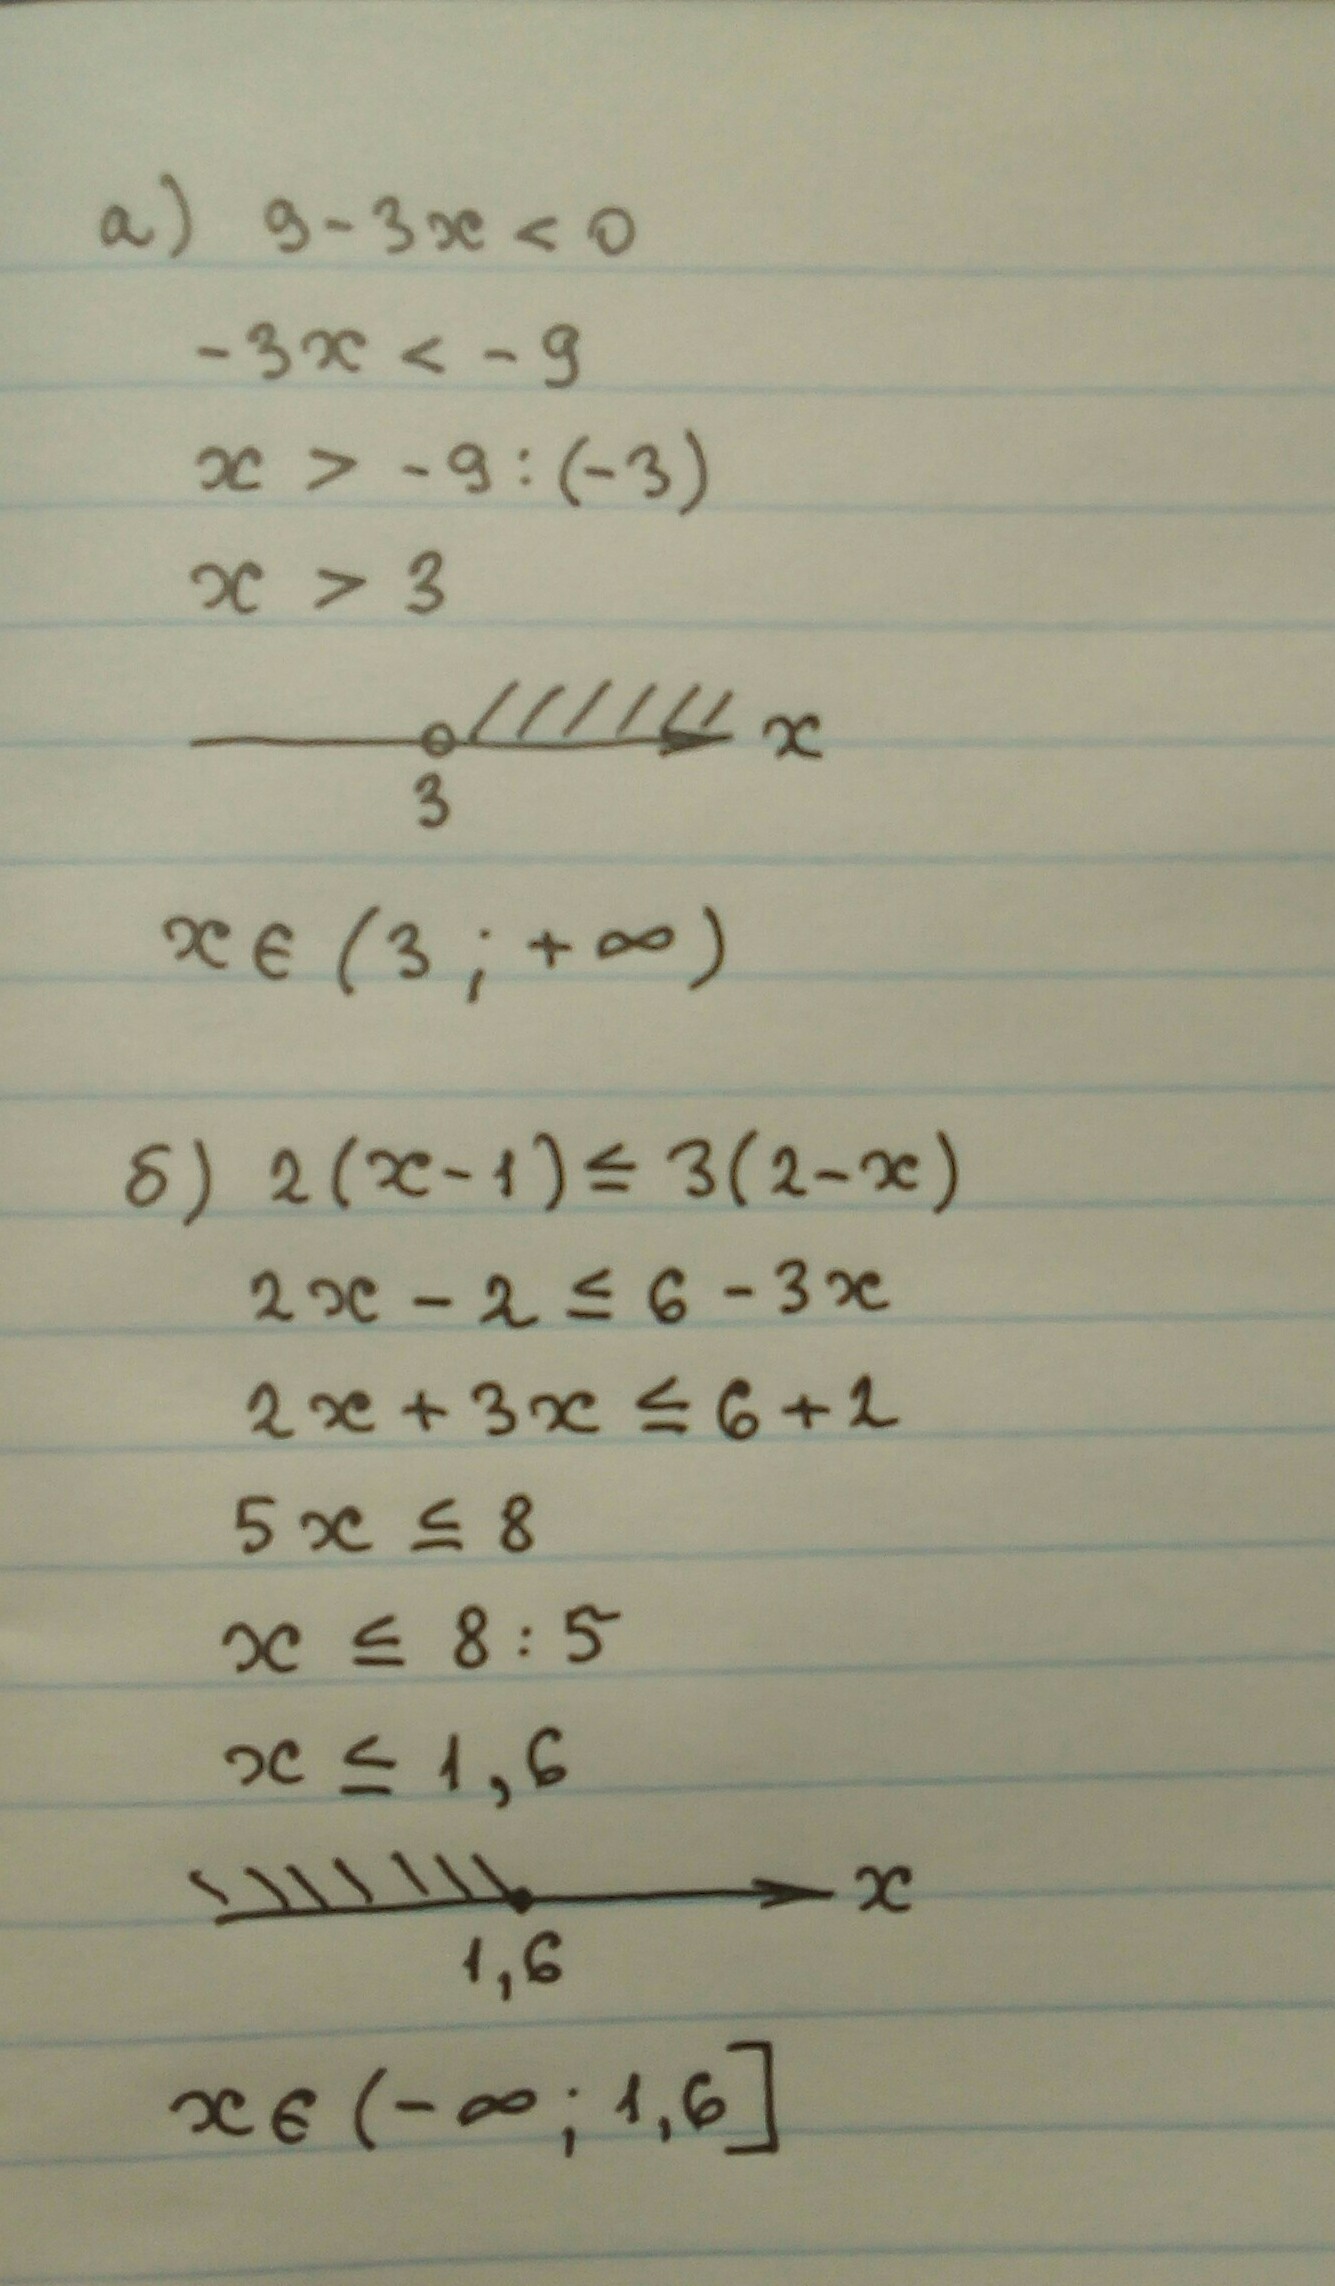 а) 9-3x<0
-3x < -9
x > -9:(-3)
x > 3
x
3
x∈(3;+∞)
б) 2(x-1)≤3(2-x)
2x-2≤6-3x
2x+3x≤6+2
5x≤8
x ≤ 8:5
x ≤ 1,6
x
1,6
x∈(-∞;1,6]